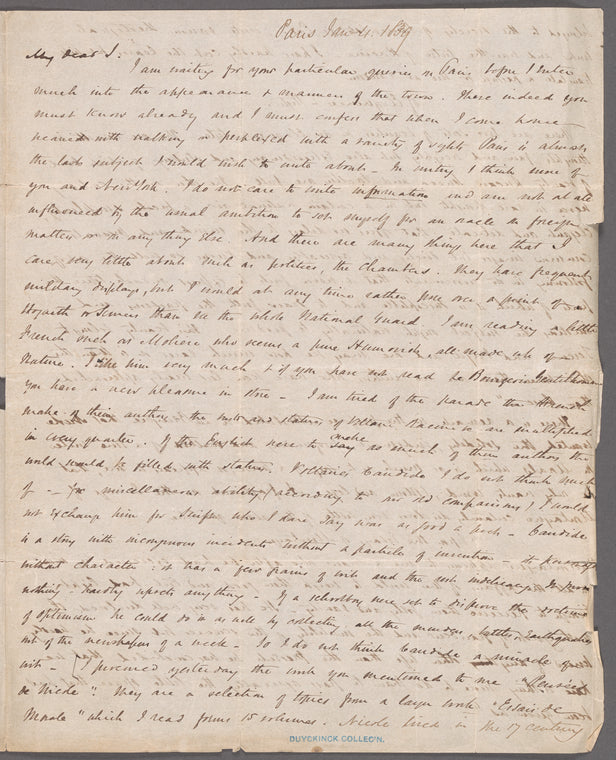 Paris Jan 4. 1839
My dear J.
I am waiting for your particular queries on Paris before I enter
much into the appearance & manners of the town. These indeed you
must know already and I must confess that when I come home
wearied with walking or perplexed with a variety of sights Paris is always
the last subject I would wish to write about. In writing I think more of
you and New York. I do not care to write information and am not at all
influenced by the usual ambition to set myself for an oracle in foreign
matters or in any thing else. And there are many things here that I
care very little about such as politics, the Chambers. They have frequent
military displays, but I would at any time rather pore over a print of
Hogarth or than on the whole National Guard. I am reading a little
French such as Moliere who seems a pure Humorist, all made up of
Nature. I like him very much & if you have not read Le Bourgeois Gentilhomme
you have a new pleasure in store - I am tired of the parade the French
make of their authors, the busts and statues of Voltaire Racine &c are multiplied
in every quarter. If the English were to make as much of their authors the
world would be filled with statues. Voltaires Candide I do not think much
of - for miscellaneous ability (according to an old comparison) I would
not exchange him for Swift who I dare say was as good a poet - Candide
is a story with incongruous incidents without a particle of invention - its personages
without character: it has a few grains of wit and the rest indelicacy. It proves
nothing - hardly upsets anything. If a schoolboy were set to disprove the doctrine
of optimism he could do it as well by collecting all the murders, battles, Earthquakes
out of the newspapers of a week - So I do not think Candide a miracle of
wit - I procured yesterday the work you mentioned to me "Pensées
de Nicole". They are a selection of topics from a large work "Essais de
Morale" which I read forms 15 volumes. Nicole lived in the 17 century
DUYCKINCK COLLEC'N.